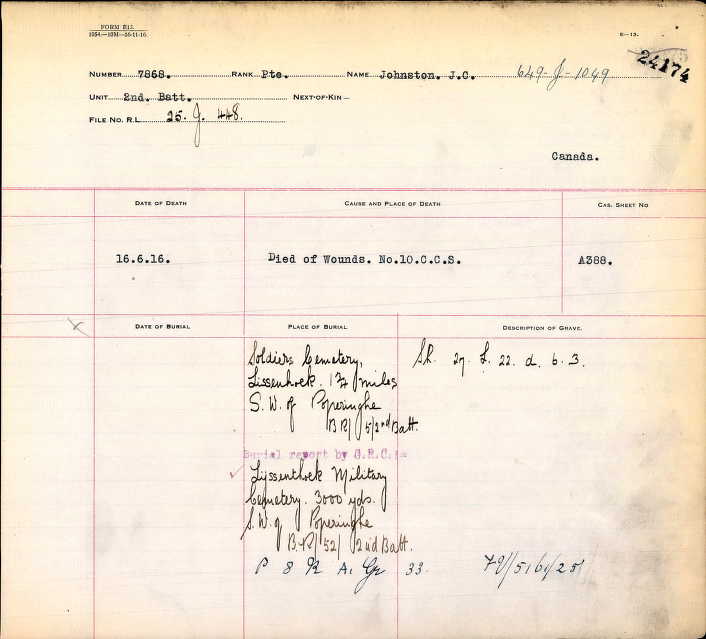 FORM R13.
1054.—10M—26-11-16.
R—13.
24174
NUMBER 7868. RANK Pte. NAME Johnston. J.C. 649-J-1049
UNIT 2nd. Batt. NEXT-OF-KIN—
FILE NO. R.L. 25. J. 448.
Canada.
DATE OF DEATH CAUSE AND PLACE OF DEATH CAS. SHEET NO
16.6.16. Died of Wounds. No.10.C.C.S. A388.
DATE OF BURIAL PLACE OF BURIAL DESCRIPTION OF GRAVE.
Soldiers Cemetery, Sh. 27. L. 22. d. 6. 3.
Lissenhoek. 1¾ miles
S.W. of Poperinghe
BR/ 5/2nd Batt.
Burial report by G.R.C:=
Lijssenthoek Military
Cemetery. 3000 yds.
S.W. of Poperinghe
B.R/ 52/ 2nd Batt.
P 8 R A. Gr 33.